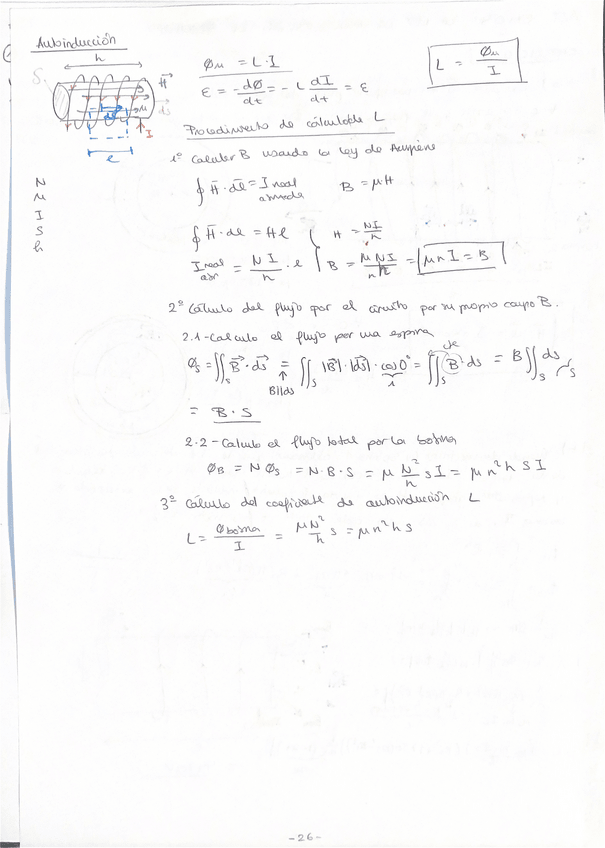 Autoinducción
h
S
H
ds
μ
dl
I
l
Øm = L·I
L = Øm / I
ε = -dØ/dt = -L dI/dt = ε
Procedimiento de cálculo de L
1º Calcular B usando la ley de Ampere
N
μ
I
S
h
∮ H·dl = I real abrazada    B = μH
∮ H·dl = Hl    H = NI/h
I real abr = NI/h · l    B = μNI/h = μnI = B
2º Cálculo del flujo por el circuito por su propio campo B.
2.1-Calculo el flujo por una espira
Øs = ∬s B·ds = ∬s |B|·|ds|·cos0° = ∬s B·ds = B ∬s ds
B||ds    1    S
= B·S
2.2-Calculo el flujo total por la bobina
ØB = NØs = N·B·S = μ N²/h S I = μn²h S I
3º Cálculo del coeficiente de autoinducción L
L = Øbobina / I = μN²/h S = μn²h S
-26-